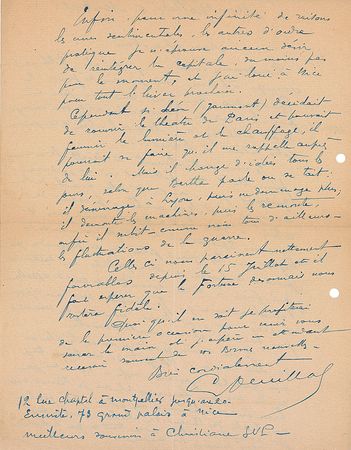 Enfin, pour une infinité de raisons
les unes sentimentales, les autres d'ordre
pratique je n'éprouve aucun désir
de réintégrer la capitale, du moins pas
pour le moment, et j'ai loué à Nice
pour tout l'hiver prochain.
Cependant si Léon (Gaumont) décidait
de rouvrir le théâtre de Paris et pouvait
fournir la lumière et le chauffage, il
pourrait se faire qu'il me rappelle auprès
de lui. Mais il change d'idées tous les
jours, selon que Bertha parle ou se tait:
il déménage à Lyon, puis ne déménage plus;
il démonte les machines, puis les remonte,
enfin il subit comme nous tous d'ailleurs
les fluctuations de la guerre.
Celles ci nous paraissent nettement
favorables depuis le 15 Juillet et il
faut espérer que la Fortune désormais nous
restera fidèle.
Quoi qu'il en soit je profiterai
de la première occasion pour venir vous
serrer la main et j'espère en attendant
recevoir souvent de vos bonnes nouvelles.
Bien cordialement
12 rue Chaptal à Montpellier jusqu'au
Ensuite, 73 grand palais à Nice
meilleurs souvenirs à Christiane SVP